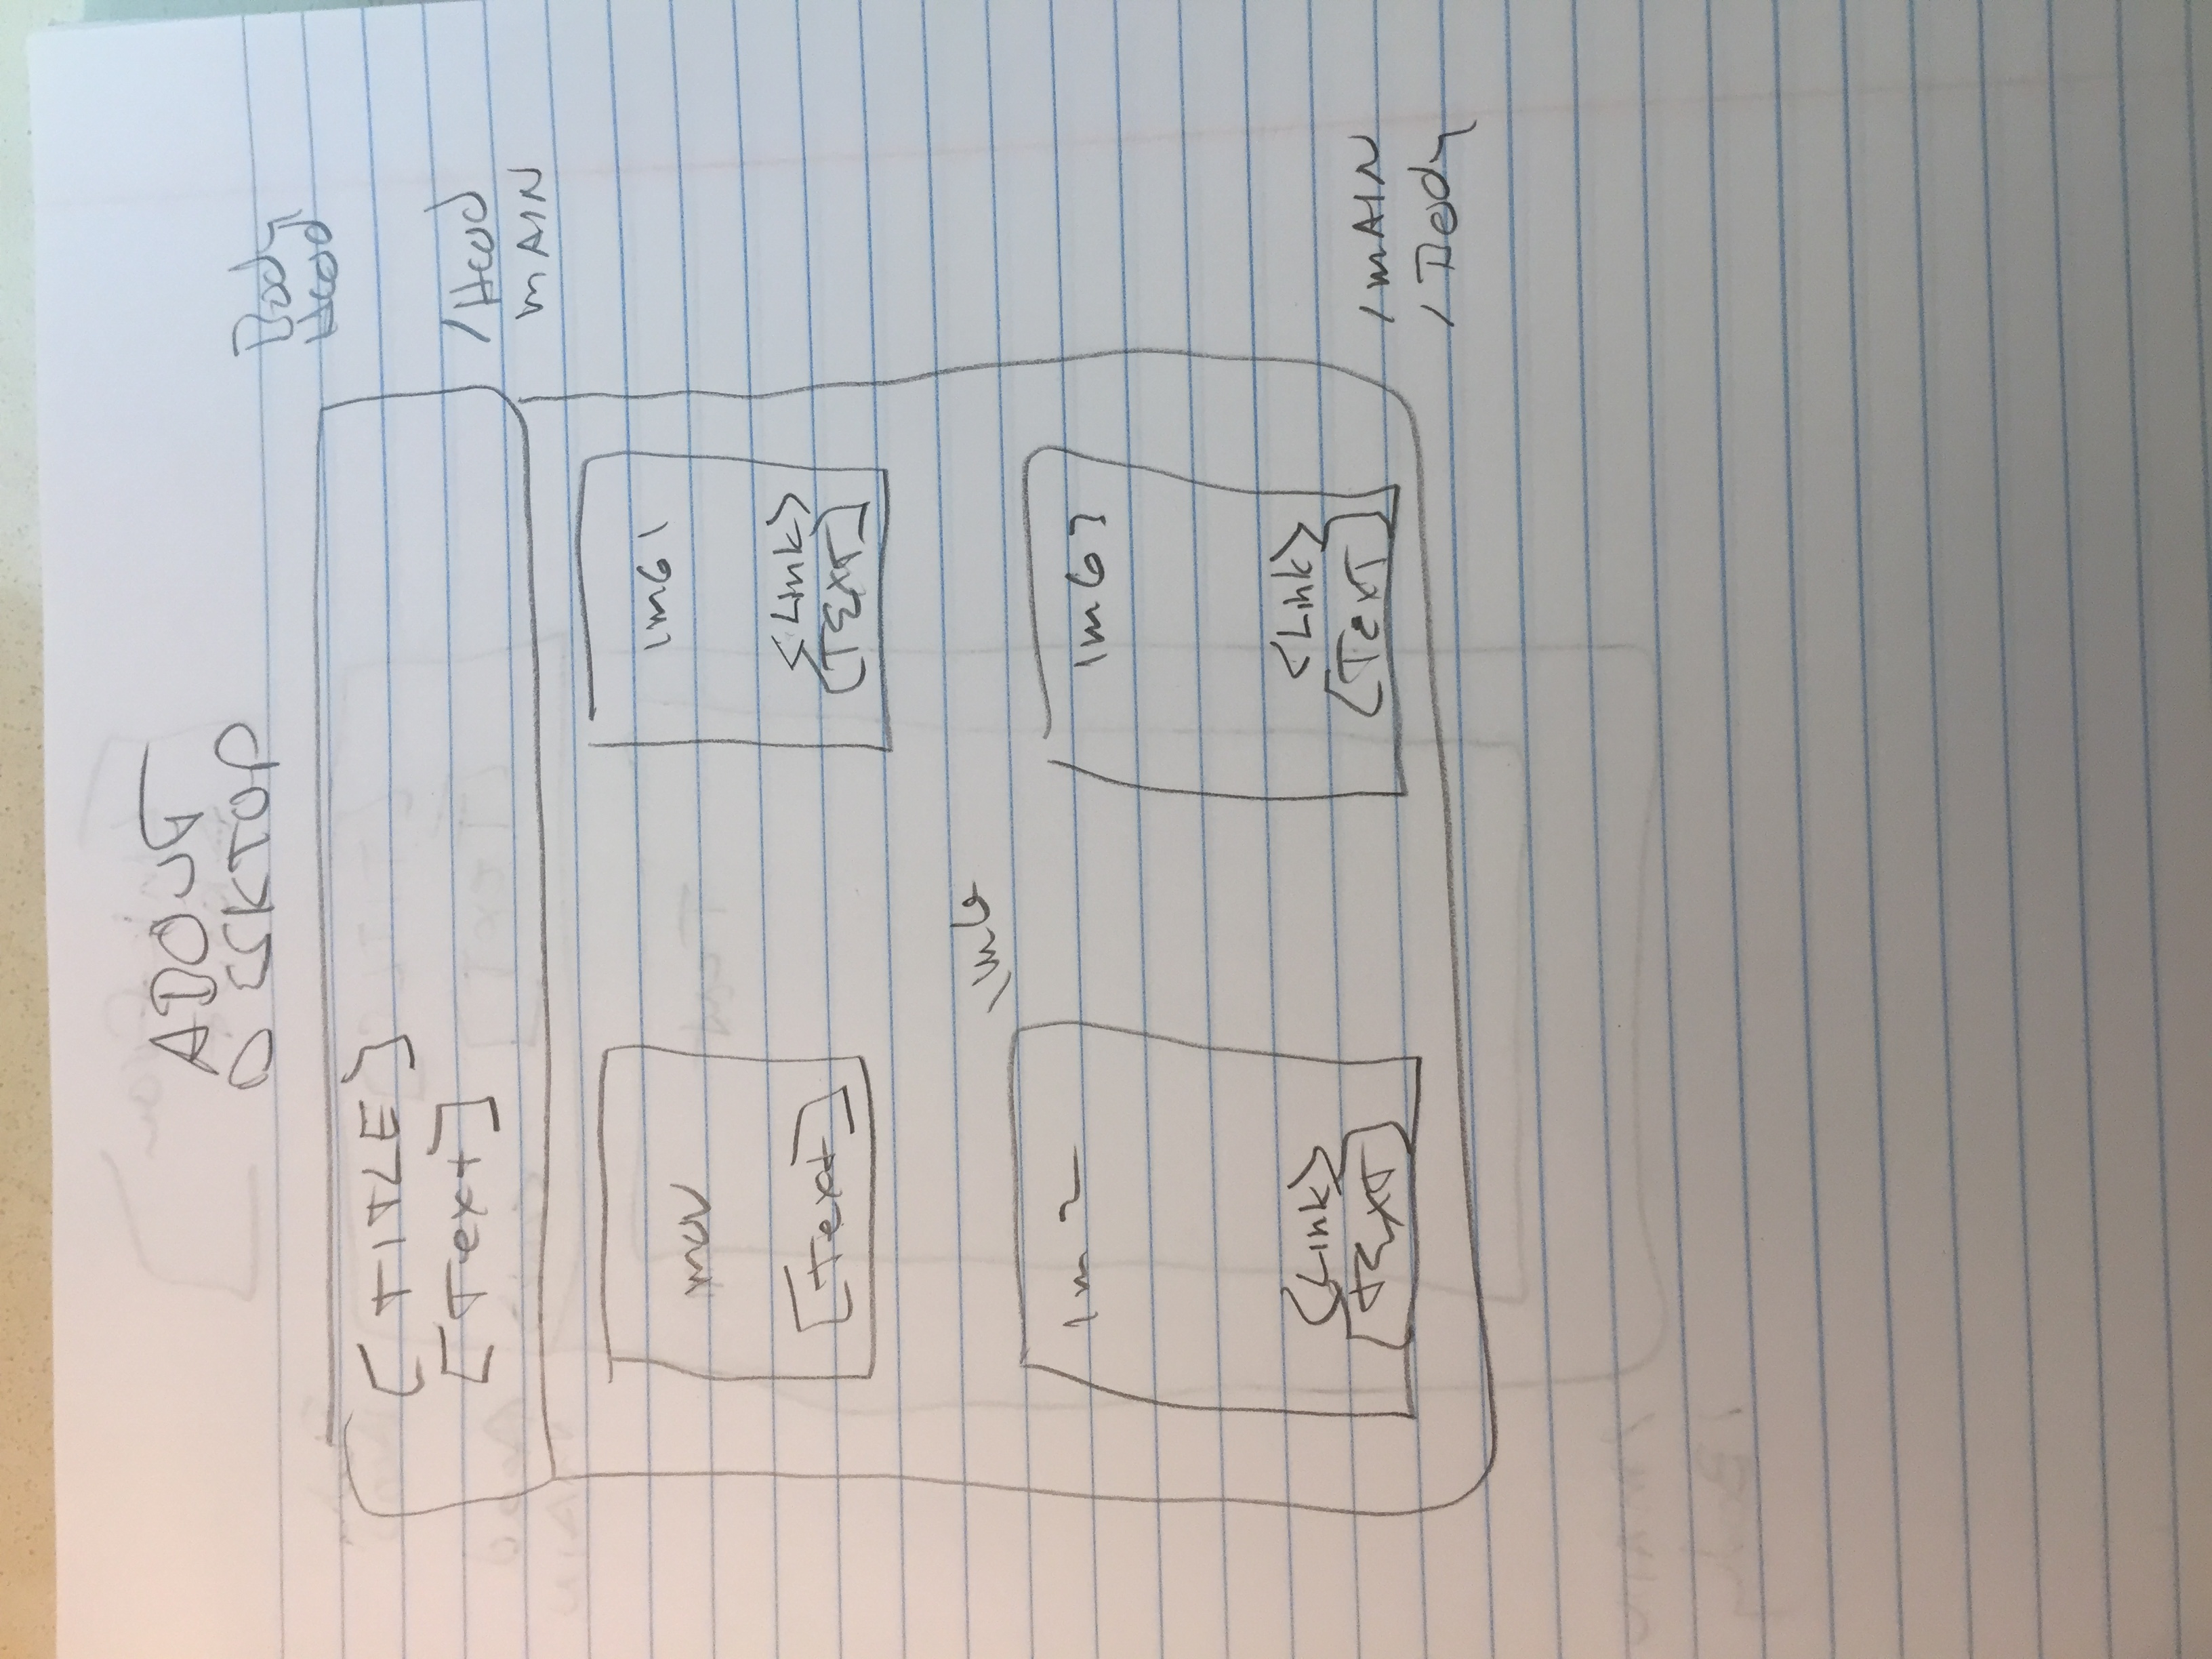 ABOUT
DESKTOP
Body
Head
[TITLE]
[Text]
/Head
MAIN
mov
[Text]
IMG1
<Link>
[TEXT]
IMG
IM2
<Link>
[TEXT]
IMG3
<Link>
[TEXT]
/MAIN
/Body